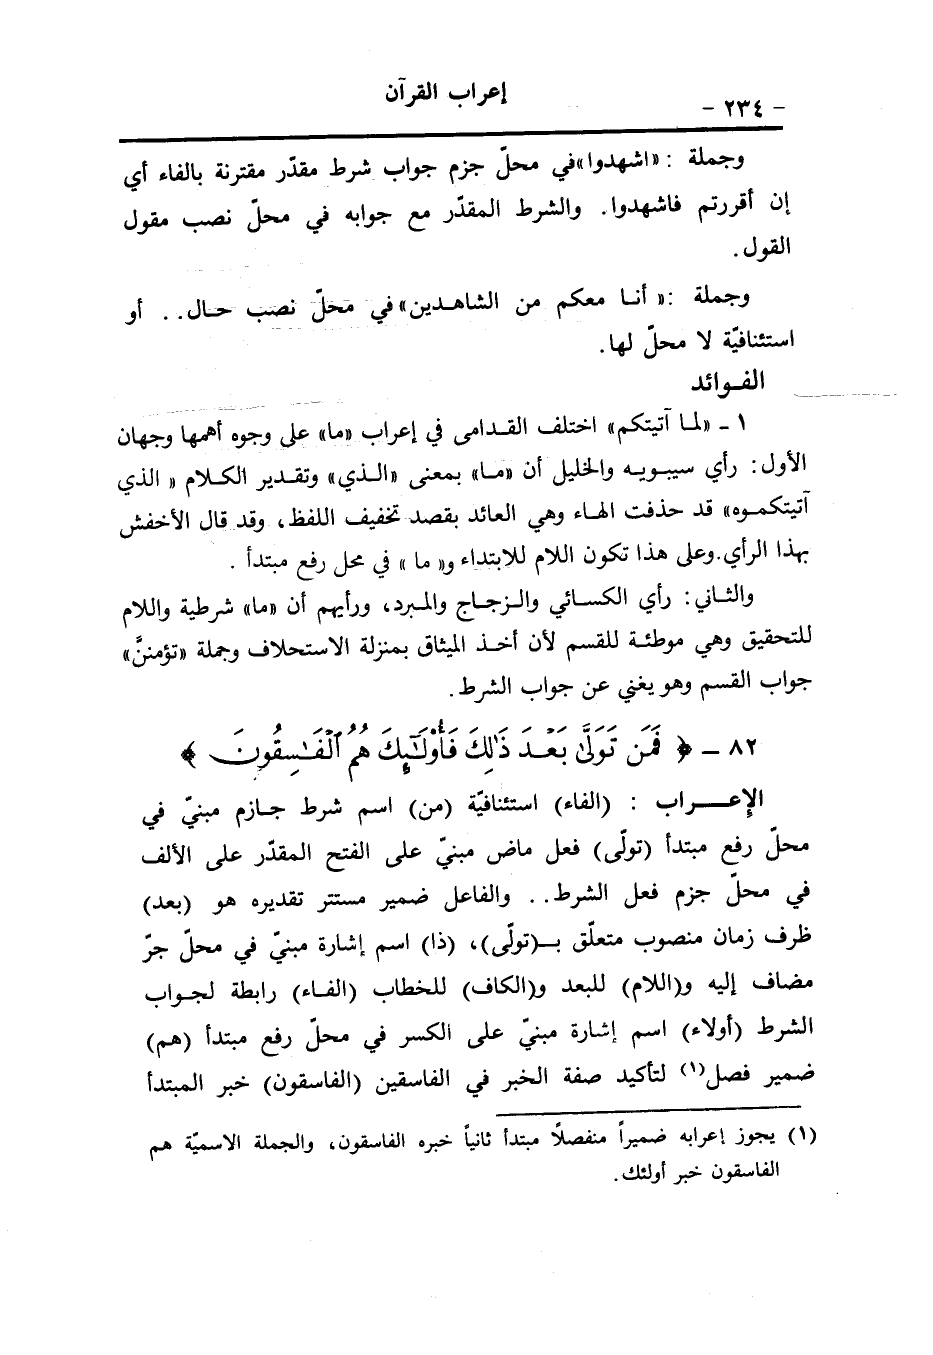 إعراب القرآن
- ٢٣٤ -
وجملة : «اشهدوا»في محلّ جزم جواب شرط مقدّر مقترنة بالفاء أي
إن أقررتم فاشهدوا. والشرط المقدّر مع جوابه في محلّ نصب مقول
القول.
وجملة :« أنا معكم من الشاهدين»في محلّ نصب حال.. أو
استئنافيّة لا محلّ لها.
الفوائد
١ - «لما آتيتكم» اختلف القدامى في إعراب «ما» على وجوه أهمها وجهان
الأول: رأي سيبويه والخليل أن «ما» بمعنى «الذي» وتقدير الكلام « الذي
آتيتكموه» قد حذفت الهاء وهي العائد بقصد تخفيف اللفظ، وقد قال الأخفش
بهذا الرأي.وعلى هذا تكون اللام للابتداء و« ما » في محل رفع مبتدأ .
والثاني: رأي الكسائي والزجاج والمبرد، ورأيهم أن «ما» شرطية واللام
للتحقيق وهي موطئة للقسم لأن أخذ الميثاق بمنزلة الاستحلاف وجملة «تؤمننَّ»
جواب القسم وهو يغني عن جواب الشرط.
٨٢ - ﴿ فَمَن تَوَلَّىٰ بَعْدَ ذَٰلِكَ فَأُوْلَٰٓئِكَ هُمُ ٱلْفَٰسِقُونَ ﴾
الإعراب : (الفاء) استئنافيّة (من) اسم شرط جازم مبنيّ في
محلّ رفع مبتدأ (تولّى) فعل ماض مبنيّ على الفتح المقدّر على الألف
في محلّ جزم فعل الشرط.. والفاعل ضمير مستتر تقديره هو (بعد)
ظرف زمان منصوب متعلّق بـ(تولّى)، (ذا) اسم إشارة مبنيّ في محلّ جرّ
مضاف إليه و(اللام) للبعد و(الكاف) للخطاب (الفاء) رابطة لجواب
الشرط (أولاء) اسم إشارة مبنيّ على الكسر في محلّ رفع مبتدأ (هم)
ضمير فصل(١) لتأكيد صفة الخبر في الفاسقين (الفاسقون) خبر المبتدأ
(١) يجوز إعرابه ضميراً منفصلاً مبتدأ ثانياً خبره الفاسقون، والجملة الاسميّة هم
الفاسقون خبر أولئك.